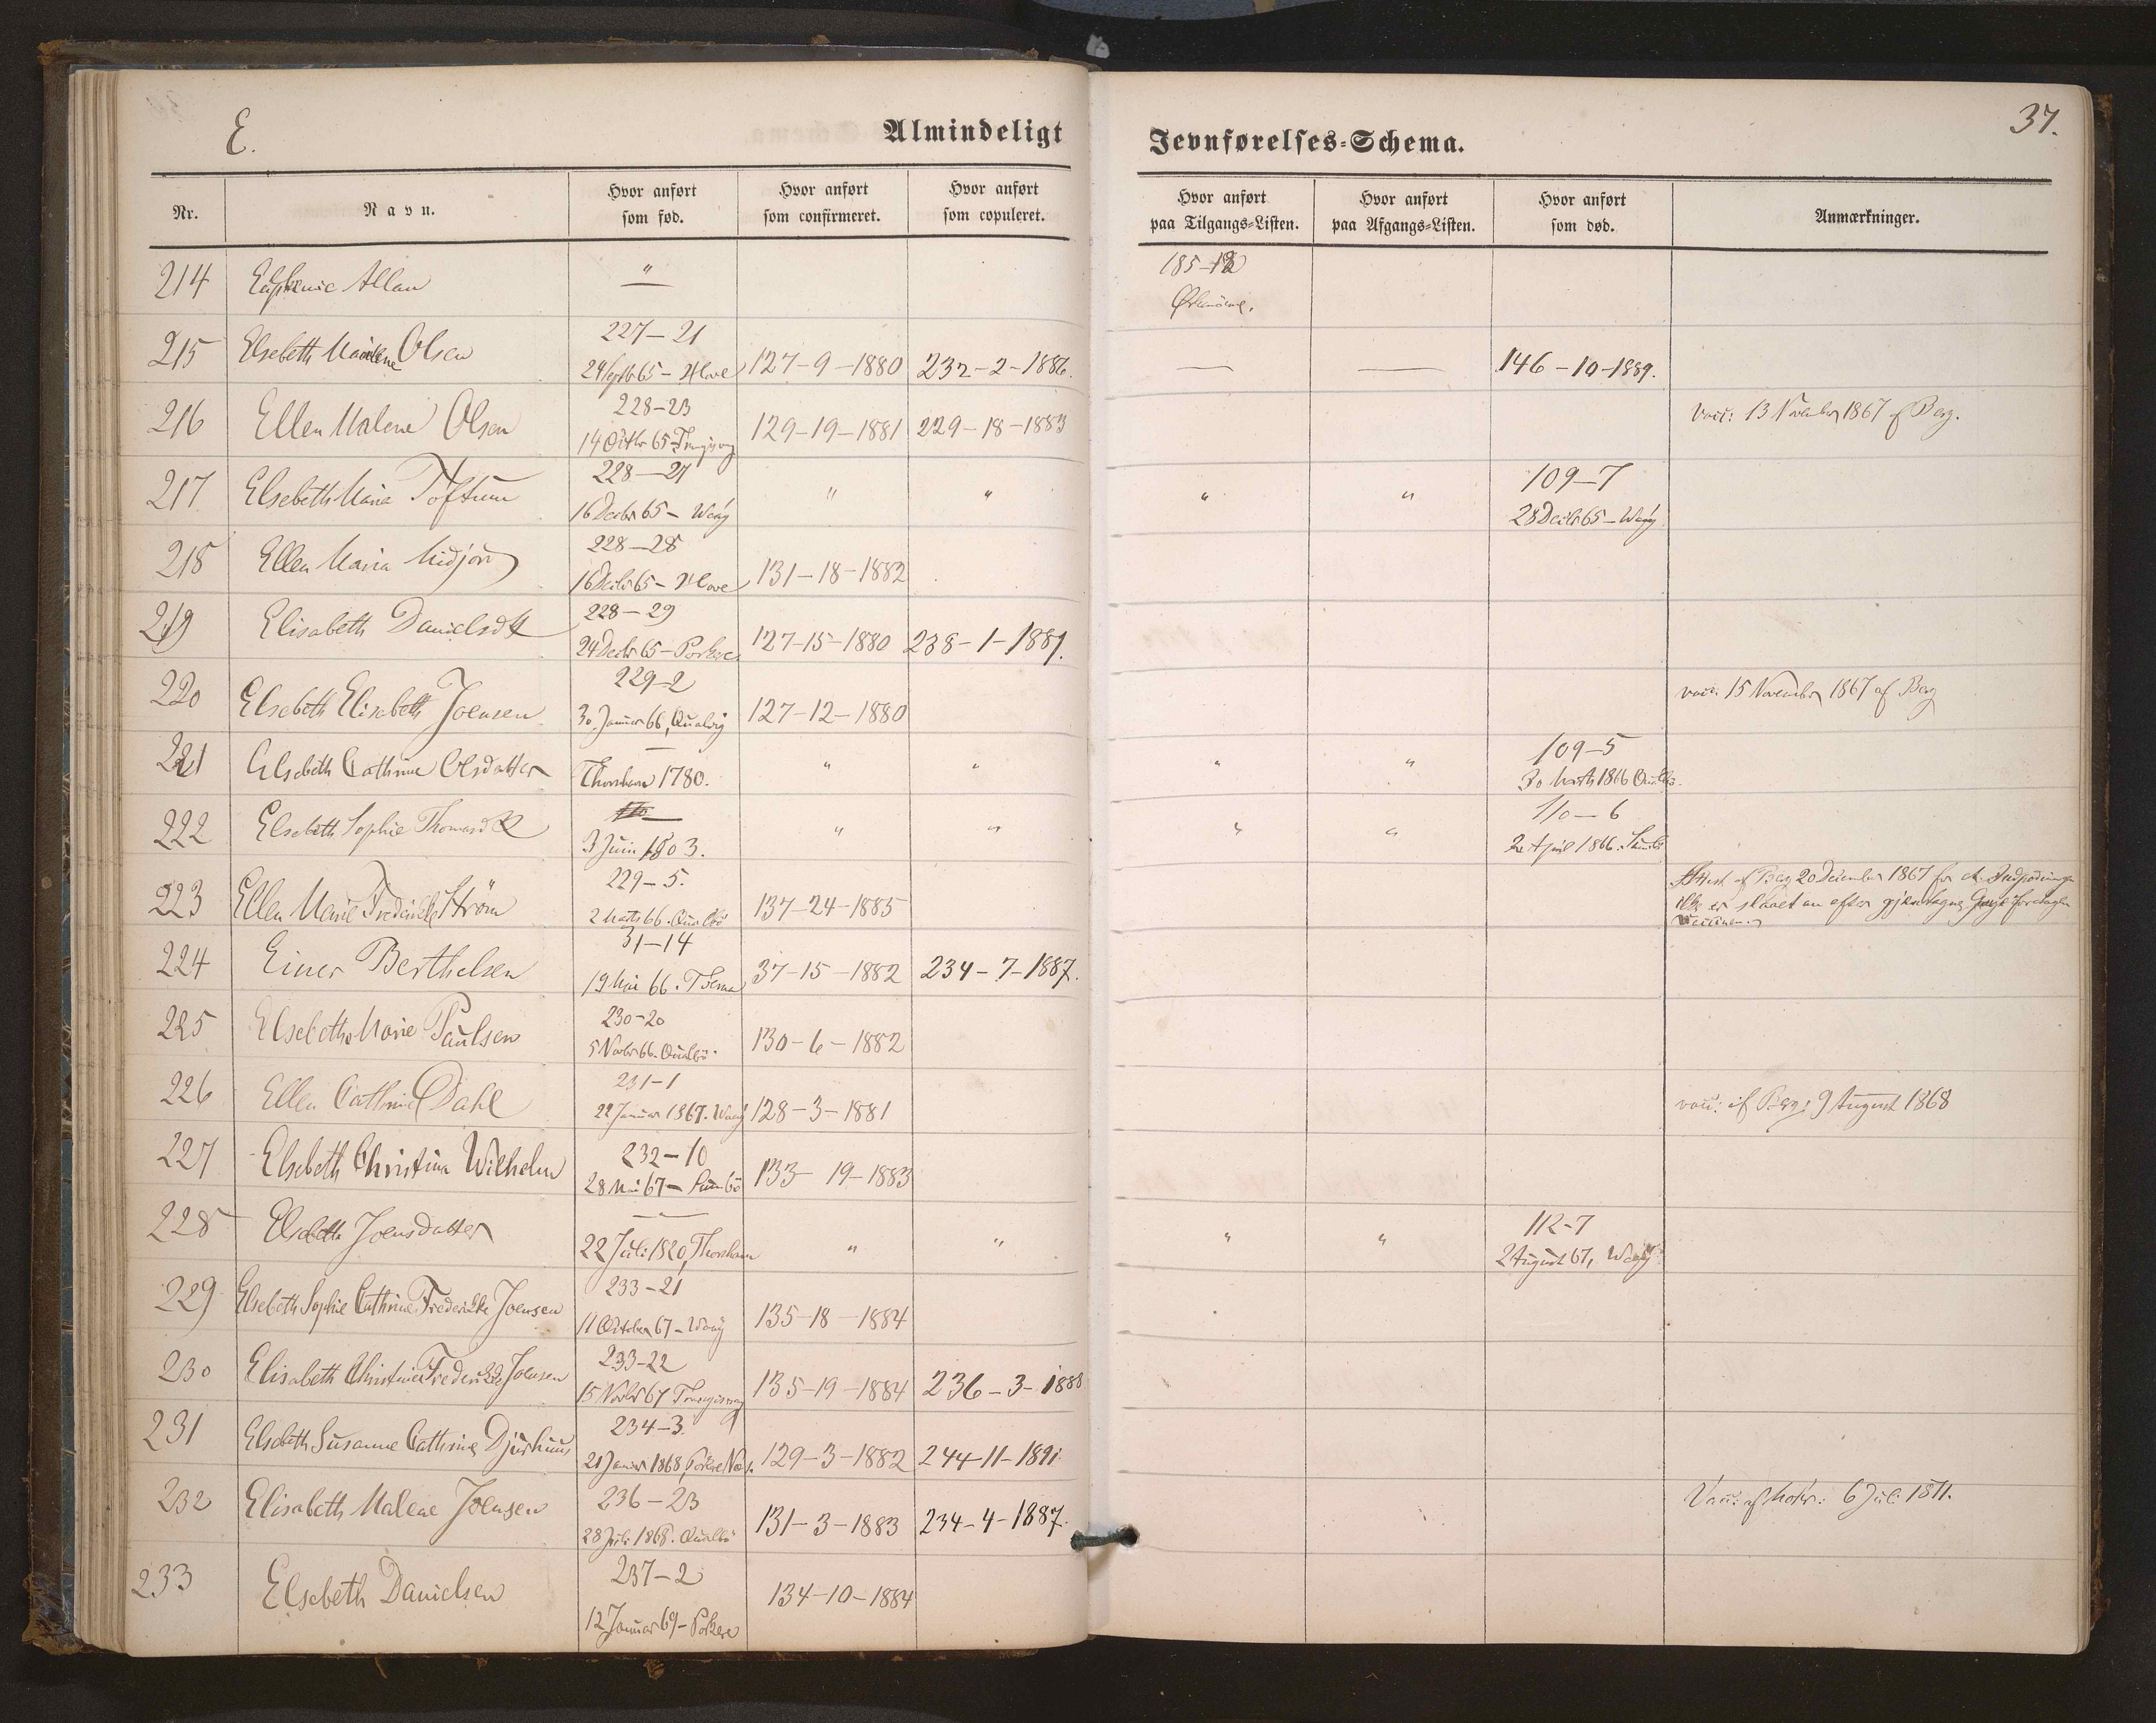 E.
Almindeligt Jevnførelses-Schema.
37.
Nr. Navn. Hvor anført som fød. Hvor anført som confirmeret. Hvor anført som copuleret. Hvor anført paa Tilgangs-Listen. Hvor anført paa Afgangs-Listen. Hvor anført som død. Anmærkninger.
214 Allan " 185-
215 Elsebeth Olsen 227-21
29 Septb 65 - Hove 127-9-1880 232-2-1886. — — 146-10-1889.
216 Ellen Malene Olsen 228-23
14 Octbr 65 129-19-1881 229-18-1883 vacc: 13 November 1867 af Berg.
217 Elsebeth Maria Toftum 228-27 " " " " 109-7
16 Decbr 65 - Waag 28 Decbr 65 - Waag
218 Ellen Maria Midjord 228-28
16 Decbr 65 - Hove 131-18-1882
219 Elisabeth Danielsdtt 228-29
24 Decbr 65 - Porkere 127-15-1880 238-1-1889.
220 Elsebeth Elisabeth Joensen 229-2
30. Januar 66, Qualvig 127-12-1880 vacc: 15 November 1867 af Berg
221 Elsebeth Cathrine Olsdatter — " " " " 109-5
Thorshavn 1780. 30 Marts 1866 Qualbö.
222 Elsebeth Sophie " " " " 110-6
3 Juni 1803. 2 April 1866. Sumbö
223 Ellen Marie Ström 229-5.
2 Marts 66. Qualbö 137-24-1885 Attest af Berg 20 December 1867 for at
ikke er slaaet an efter
Vaccinen.
224 Einer Berthelsen 31-14
19 Mai 66. 37-15-1882 234-7-1887.
225 Elsebeth Marie Paulsen 230-20
5 Novbr 66. Qualbö. 130-6-1882
226 Ellen Cathrine Dahl 231-1
22 Januar 1867. Waag 128-3-1881 vacc: af Berg: 9 August 1868
227 Elsebeth Christina Wilhelm 232-10
28 Mai 67 - Sumbö 133-19-1883
228 Elsebeth Joensdatter — " " " " 112-7
22 Juli 1820, Thorshavn 2 August 67, Waag
229 Elsebeth Sophie Cathrine Frederikke Joensen 233-21
11 October 67 - Waag 135-18-1884
230 Elisabeth Christine Frederikke Joensen 233-22
15 Novbr 67 135-19-1884 236-3-1888
231 Elsebeth Susanne Cathrine Djurhuus 234-3
21 Januar 1868, Porkere 129-3-1882 244-11-1891
232 Elisabeth Malene Joensen 236-23
28 Juli 1868. Qualbö 131-3-1883 234-4-1887. Vacc: af 6 Juli 1871.
233 Elsebeth Danielsen 237-2
12 Januar 69 - Porkere 134-10-1884